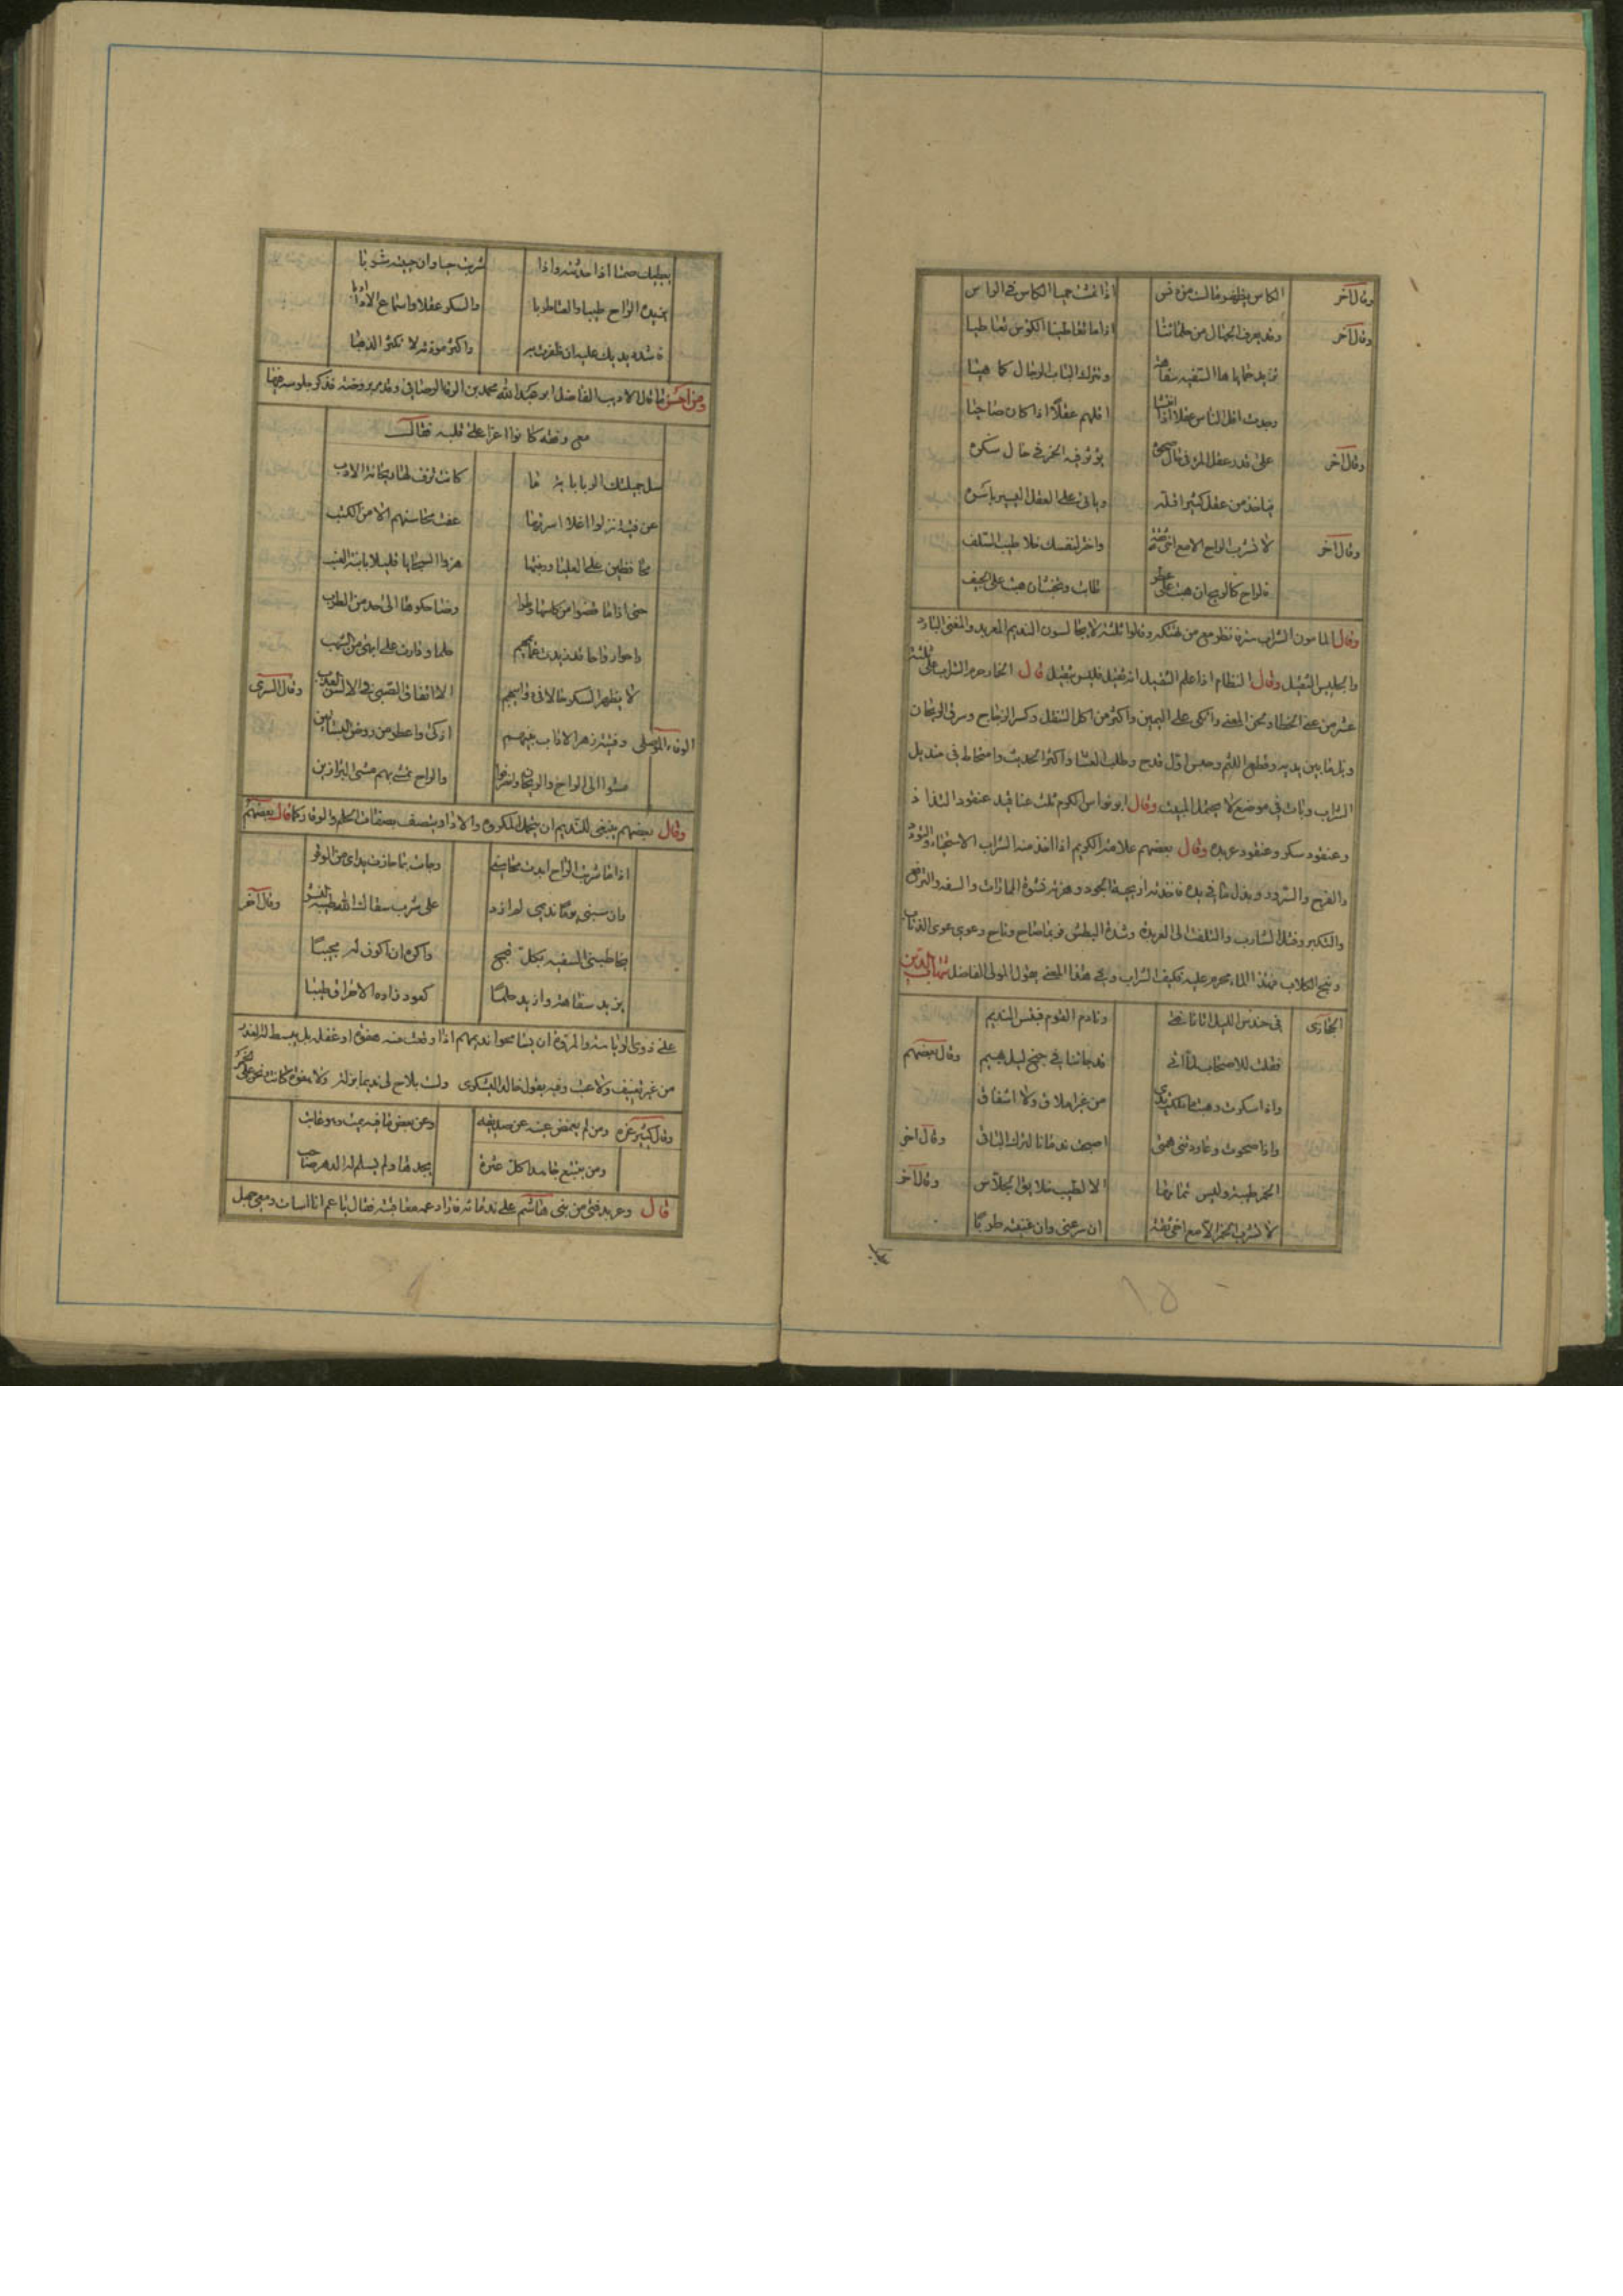 وقال آخر الكاس يظهر ما اذا تمشت حميا الكاس في الراس
وقال آخر وقد يعرف الجهال من حلمائنا اذا ما تعاطينا الكؤس تعاطيا
تزيد حماياها السفيه سفاهة وتترك الباب الرجال كما هيا
وجدت اقل الناس عقلا اذا انتشا اقلهم عقلاً اذا كان صاحيا
وقال آخر على قدر عقل المرء في حال صحوه يؤثر فيه الخمر في حال سكره
فياخذ من عقل كثير اقله وياتي على العقل اليسير باسره
وقال آخر لا تشرب الراح الا مع اخي ثقة واختر لنفسك خلا طيب السلف
فالراح كالريح ان هبت على عطر طابت وتخبث ان هبت على الجيف
وقال المامون الشراب ستره فانظر مع من تهتكه وقالوا ثلثة لا يجالسون النديم المعربد والمغني البارد
والجليس الثقيل وقال النظام اذا علم الثقيل انه ثقيل فليس بثقيل قال الخمار حرم الشراب على ثلثة
عشر من غنى الخطا ولحن المعنى واتكى على اليمين واكثر من اكل النقل وكسر الزجاج وسرق الريحان
وبل ما بين يديه وقطع اللثم وحبس اول قدح وطلب العشا واكثر الحديث وامتخط في منديل
الشراب وبات في موضع لا يحتمل المبيت وقال ابو نواس للكرم ثلث عناقيد عنقود التذاذ
وعنقود سكر وعنقود عربدة وقال بعضهم علامة الكريم اذا اخذ منه الشراب الاستحياء والتودد
والفرح والسرور وبذل ما في يده فاخذته اريحية الجود وهزته نشوة
والتكبر وفتل الشارب والتلفت الى العربدة وشدة البطش فربما صاح وناح وعوى عوى الذئاب
ونبح الكلاب فهذا محرم عليه تكيف الشراب وفي هذا المعنى يقول المولى الفاضل شهاب الدين
الحجازى في حندس الليل اتانا فتى ونادم القوم فبئس النديم
فقلت للاصحاب لما اتى قد جاءنا في جنح ليل بهيم وقال بعضهم
واذا سكرت وهبت ما ملكت يدى من غير املاق ولا اشفاق
واذا صحوت وعاودتني همتي اصبحت ندمانا لترك الباقي وقال آخر
الخمر طيبة وليس تمامها الا لطيب خلايق الجلاس وقال آخر
لا تشرب الخمر الا مع اخي ثقة ان سرعني وان غنيته طربا
يعطيك صمتا اذا حدثته واذا شربت حيا وان حييته شربا
يزيده الراح طيبا والغنا طربا والسكر عقلا واستماع الاذى ادبا
فشد يديك عليه ان ظفرت به واكثر مودته لا تكثر الذهبا
ومن احسن ما قال الاديب الفاضل ابو عبد الله محمد بن الوفا الرصافي وقد مر بروضة فذكر جلوسه فيها
مع رفقة كانوا اعزا على قلبه فقال
سل كانت ترف لها ريحانة الادب
عن فتية نزلوا اعلا اسرتها عفت محاسنهم الا من الكتب
محافظين على العليا وربتما هزوا السجايا قليلا بابنة العنب
حتى اذا ما قضوا من كاسها وطرا وضاحكوها الى حد من الطرب
راحوا رواحا وقد زيدت عمايمهم حلما ودارت على ابهى من الشهب
لا يظهر السكر حالا في ذوايبهم الا التفات الصبا في الالسن العذب وقال السرى
الوفاء الموصلى وفتية زهر الاداب بينهم ازكى واعطر من زهر الرياحين
مشوا الى الراح مشي الرخ وانصرفوا والراح تمشي بهم مشي البراذين
وقال بعضهم ينبغي للنديم ان يتحمل المكروه والاذا ويتصف بصفات الحلم والوقار كما قال بعضهم
اذا ما شربت الراح ابدت محاسني وجادت بما حازت يداى من الوفر
وان سبني يوما نديمي لم ازد على شرب سقاك الله طيبة النشر وقال آخر
يخاطبني السفيه بكل قبح واكره ان اكون له مجيبا
يزيد سفاهة وازيد حلما كعود زاده الاحراق طيبا
على ذوي الرياسة والمروة ان يسامحوا نديمهم اذا وقعت منه هفوة او غفلة بل يبسط له العذر
من غير تعنيف ولا عتب وفيه يقول خالد اليشكرى ولست بلاح لي نديما بزلة ولا هفوة كانت ونحن على الخمر
وقال كثير عزه ومن لم يغمض عينه عن صديقه وعن بعض ما فيه يمت وهو عاتب
ومن يتتبع جاهدا كل عثرة يجدها ولم يسلم له الدهر صاحب
قال وعربد فتى من بني هاشم على ندمائه فاراد عمه معاقبته فقال يا عم انا اسات ومعي جهل
١٥